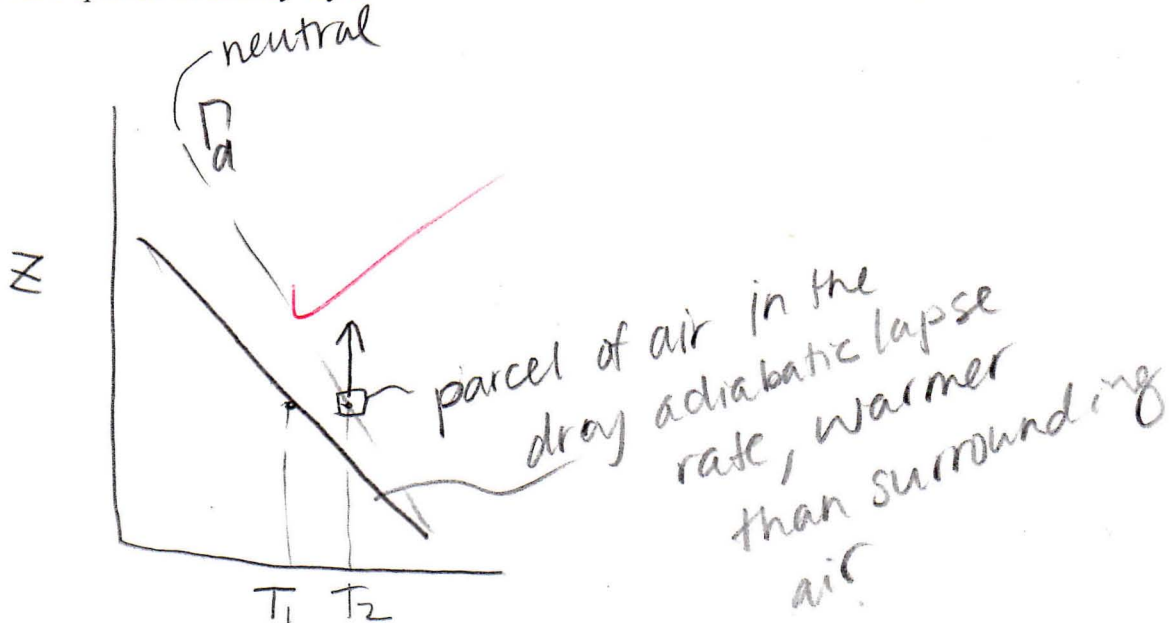 neutral
Γd
Z
parcel of air in the
dray adiabatic lapse
rate, warmer
than surrounding
air
T1 T2